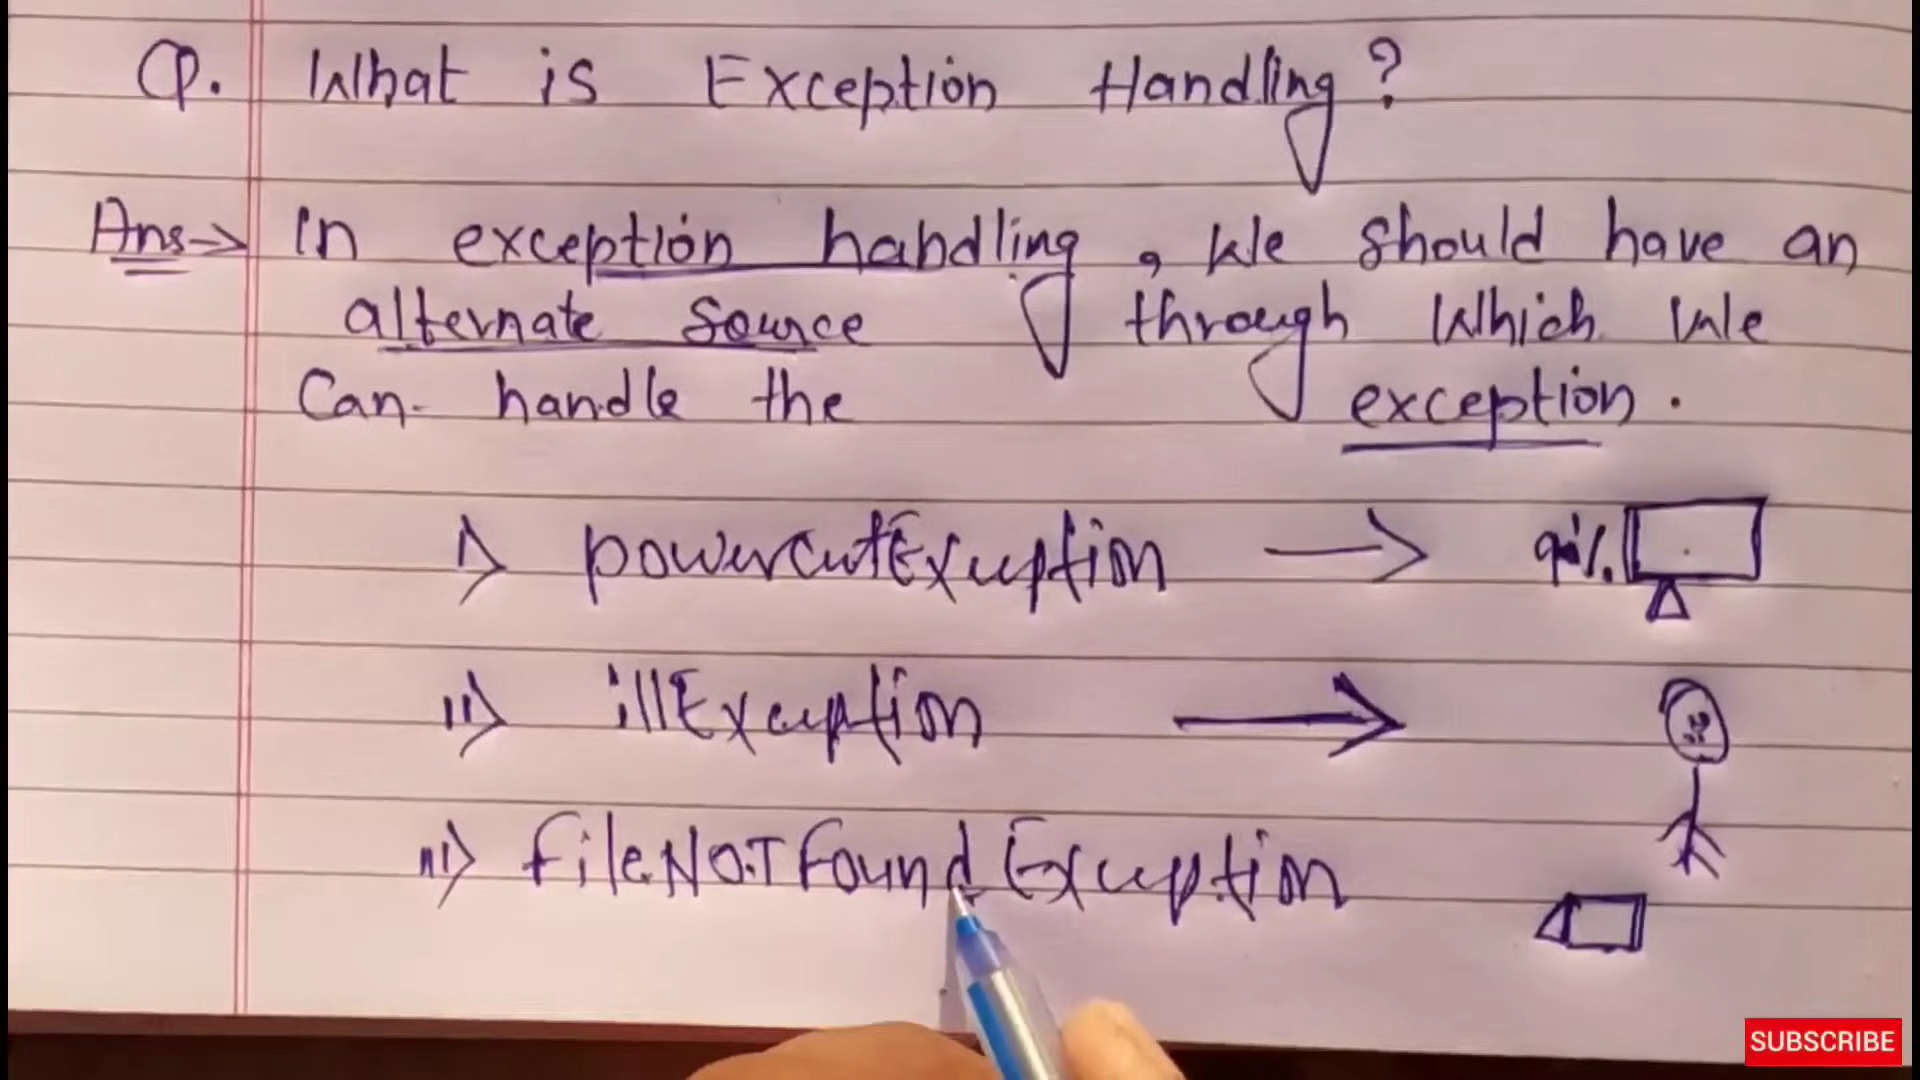 Q. What is Exception Handling?
Ans→ In exception handling, we should have an
alternate source through which we
Can handle the exception.
i> powercutException → 90%.
ii> illException →
iii> fileNOTFoundException
SUBSCRIBE